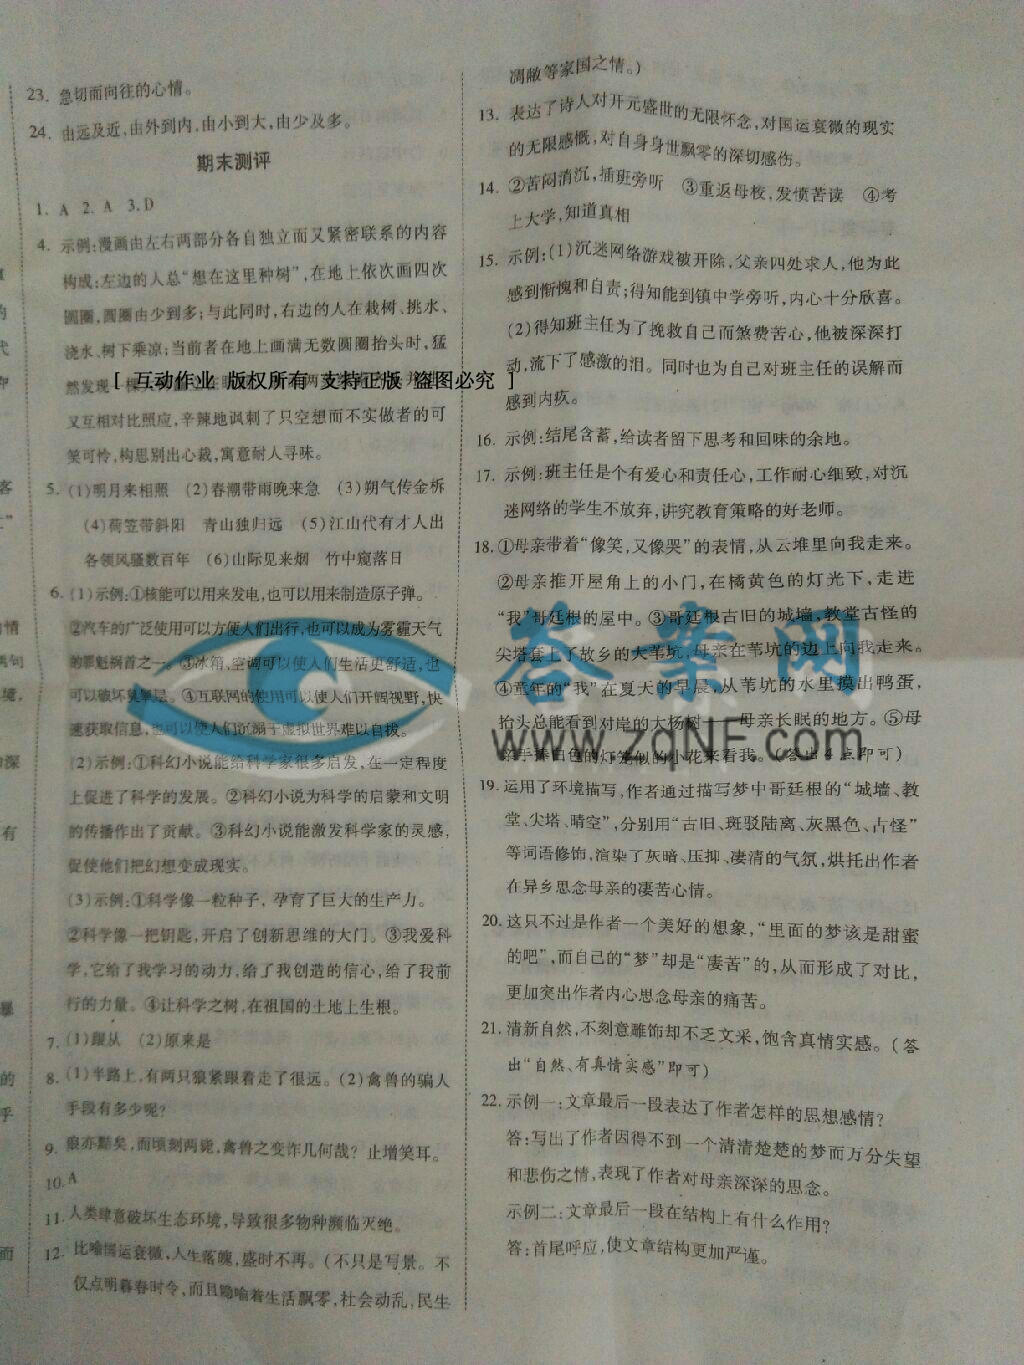 23. 急切而向往的心情。
24. 由远及近,由外到内,由小到大,由少及多。
期末测评
1. A 2. A 3. D
4. 示例:漫画由左右两部分各自独立而又紧密联系的内容
构成:左边的人总“想在这里种树”,在地上依次画四次
圆圈,圆圈由少到多;与此同时,右边的人在栽树、挑水、
浇水、树下乘凉;当前者在地上画满无数圆圈抬头时,猛
然发现一棵
[ 互动作业 版权所有 支持正版 盗图必究 ]
又互相对比照应,辛辣地讽刺了只空想而不实做者的可
笑可怜,构思别出心裁,寓意耐人寻味。
5. (1)明月来相照 (2)春潮带雨晚来急 (3)朔气传金柝
(4)荷笠带斜阳 青山独归远 (5)江山代有才人出
各领风骚数百年 (6)山际见来烟 竹中窥落日
6. (1)示例:①核能可以用来发电,也可以用来制造原子弹。
②汽车的广泛使用可以方便人们出行,也可以成为雾霾天气
的罪魁祸首之一。③冰箱,空调可以使人们生活更舒适,也
可以破坏臭氧层。④互联网的使用可以使人们开阔视野,快
速获取信息,也可以使人们沉溺于虚拟世界难以自拨。
(2)示例:①科幻小说能给科学家很多启发,在一定程度
上促进了科学的发展。②科幻小说为科学的启蒙和文明
的传播作出了贡献。③科幻小说能激发科学家的灵感,
促使他们把幻想变成现实。
(3)示例:①科学像一粒种子,孕育了巨大的生产力。
②科学像一把钥匙,开启了创新思维的大门。③我爱科
学,它给了我学习的动力,给了我创造的信心,给了我前
行的力量。④让科学之树,在祖国的土地上生根。
7. (1)跟从 (2)原来是
8. (1)半路上,有两只狼紧跟着走了很远。(2)禽兽的骗人
手段有多少呢?
9. 狼亦黠矣,而顷刻两毙,禽兽之变诈几何哉?止增笑耳。
10. A
11. 人类肆意破坏生态环境,导致很多物种濒临灭绝。
12. 比喻国运衰微,人生落魄,盛时不再。(不只是写景。不
仅点明暮春时令,而且隐喻着生活飘零,社会动乱,民生
凋敝等家国之情。)
13. 表达了诗人对开元盛世的无限怀念,对国运衰微的现实
的无限感慨,对自身身世飘零的深切感伤。
14. ②苦闷消沉,插班旁听 ③重返母校,发愤苦读 ④考
上大学,知道真相
15. 示例:(1)沉迷网络游戏被开除,父亲四处求人,他为此
感到惭愧和自责;得知能到镇中学旁听,内心十分欣喜。
(2)得知班主任为了挽救自己而煞费苦心,他被深深打
动,流下了感激的泪。同时也为自己对班主任的误解而
感到内疚。
16. 示例:结尾含蓄,给读者留下思考和回味的余地。
17. 示例:班主任是个有爱心和责任心,工作耐心细致,对沉
迷网络的学生不放弃,讲究教育策略的好老师。
18. ①母亲带着“像笑,又像哭”的表情,从云堆里向我走来。
②母亲推开屋角上的小门,在橘黄色的灯光下,走进
“我”哥廷根的屋中。③哥廷根古旧的城墙,教堂古怪的
尖塔套上了故乡的大苇坑,母亲在苇坑的边上向我走来。
④童年的“我”在夏天的早晨,从苇坑的水里摸出鸭蛋,
抬头总能看到对岸的大杨树——母亲长眠的地方。⑤母
亲手捧白色的灯笼似的小花来看我。(答出4点即可)
19. 运用了环境描写,作者通过描写梦中哥廷根的“城墙、教
堂、尖塔、晴空”,分别用“古旧、斑驳陆离、灰黑色、古怪”
等词语修饰,渲染了灰暗、压抑、凄清的气氛,烘托出作者
在异乡思念母亲的凄苦心情。
20. 这只不过是作者一个美好的想象,“里面的梦该是甜蜜
的吧”,而自己的“梦”却是“凄苦”的,从而形成了对比,
更加突出作者内心思念母亲的痛苦。
21. 清新自然,不刻意雕饰却不乏文采,饱含真情实感。(答
出“自然、有真情实感”即可)
22. 示例一:文章最后一段表达了作者怎样的思想感情?
答:写出了作者因得不到一个清清楚楚的梦而万分失望
和悲伤之情,表现了作者对母亲深深的思念。
示例二:文章最后一段在结构上有什么作用?
答:首尾呼应,使文章结构更加严谨。
答案网
www.zqNF.com